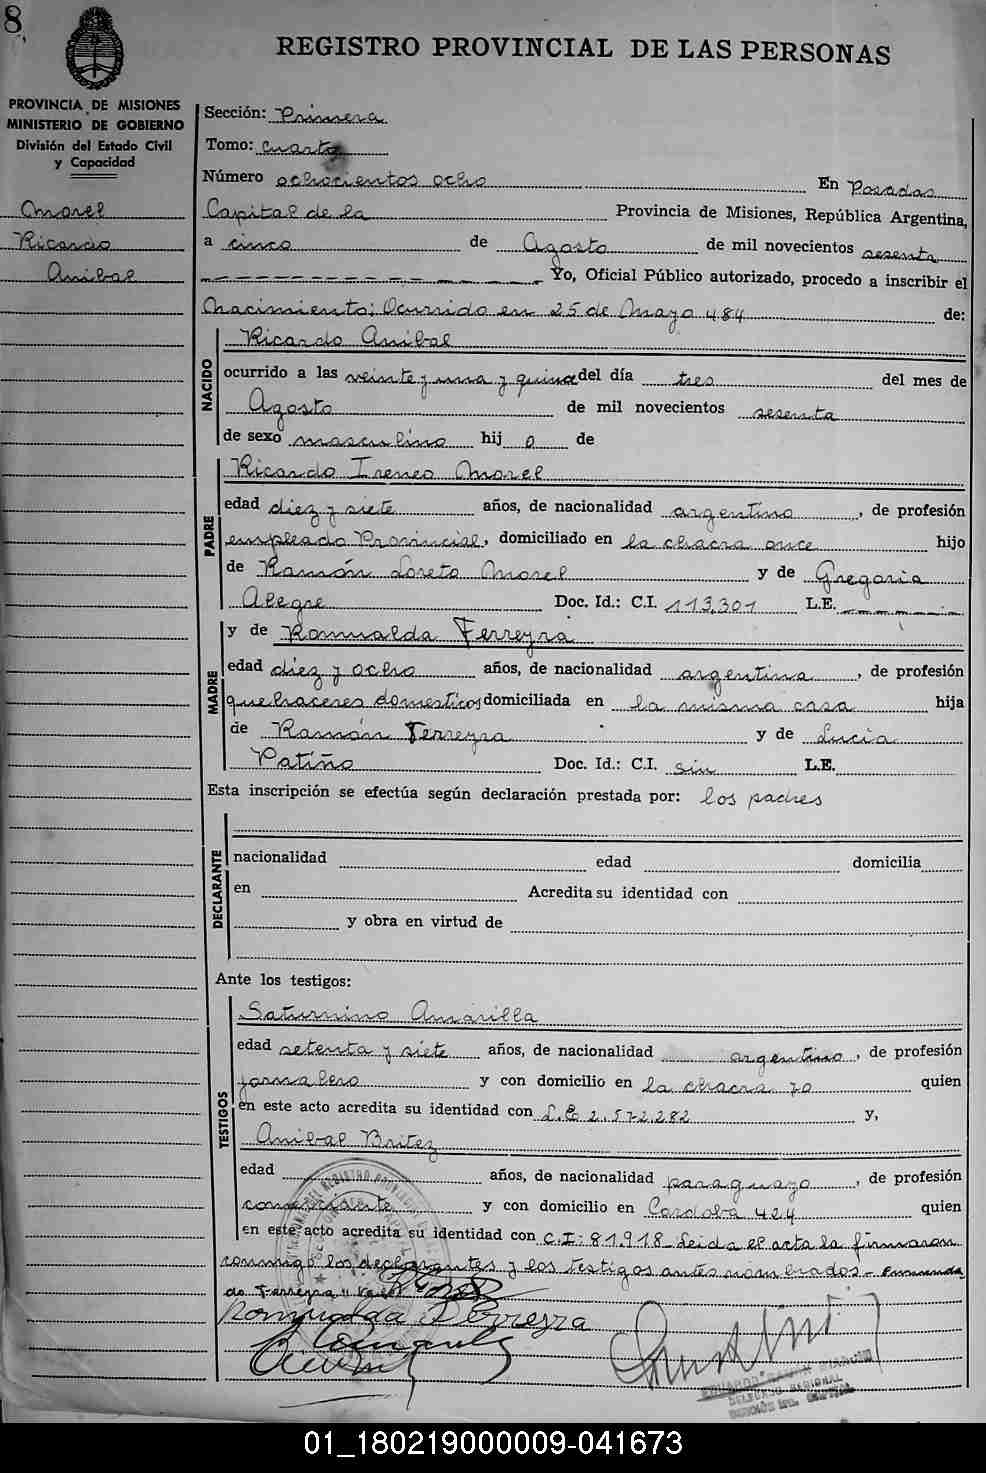 8
REGISTRO PROVINCIAL DE LAS PERSONAS
PROVINCIA DE MISIONES
MINISTERIO DE GOBIERNO
División del Estado Civil
y Capacidad
Morel
Ricardo
Anibal
Sección: Primera
Tomo: cuarto
Número ochocientos ocho En Posadas
Capital de la Provincia de Misiones, República Argentina,
a cinco de Agosto de mil novecientos sesenta
Yo, Oficial Público autorizado, procedo a inscribir el
Nacimiento; Ocurrido en 25 de Mayo 484 de:
NACIDO
Ricardo Anibal
ocurrido a las veinte y una y quince del día tres del mes de
Agosto de mil novecientos sesenta
de sexo masculino hij o de
PADRE
Ricardo Ireneo Morel
edad diez y siete años, de nacionalidad argentino, de profesión
empleado Provincial, domiciliado en la chacra once hijo
de Ramón Loreto Morel y de Gregoria
Alegre Doc. Id.: C.I. 113.301 L.E.
MADRE
y de Romualda Ferreyra
edad diez y ocho años, de nacionalidad argentina, de profesión
quehaceres domesticos domiciliada en la misma casa hija
de Ramón Ferreyra y de Lucia
Patiño Doc. Id.: C.I. sin L.E.
Esta inscripción se efectúa según declaración prestada por: los padres
DECLARANTE
nacionalidad edad domicilia
en Acredita su identidad con
y obra en virtud de
Ante los testigos:
TESTIGOS
Saturnino Amarilla
edad setenta y siete años, de nacionalidad argentino, de profesión
jornalero y con domicilio en la chacra 70 quien
en este acto acredita su identidad con L.E 2.572.282 y,
Anibal Britez
edad años, de nacionalidad paraguayo, de profesión
comerciante y con domicilio en Cordoba 424 quien
en este acto acredita su identidad con C.I: 81.918_Leida el acta la firmaron
conmigo los declarantes y los testigos antes nombrados_ enmenda
do "Ferreyra" Vale
Romualda Ferreyra
01_180219000009-041673